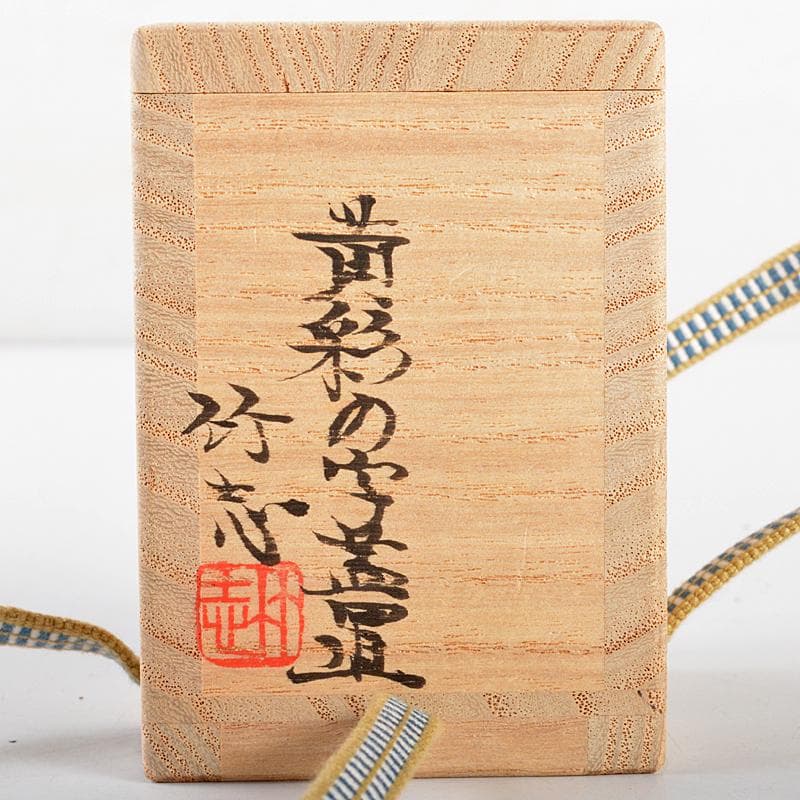 黄彩の字蓋置
竹志
竹志